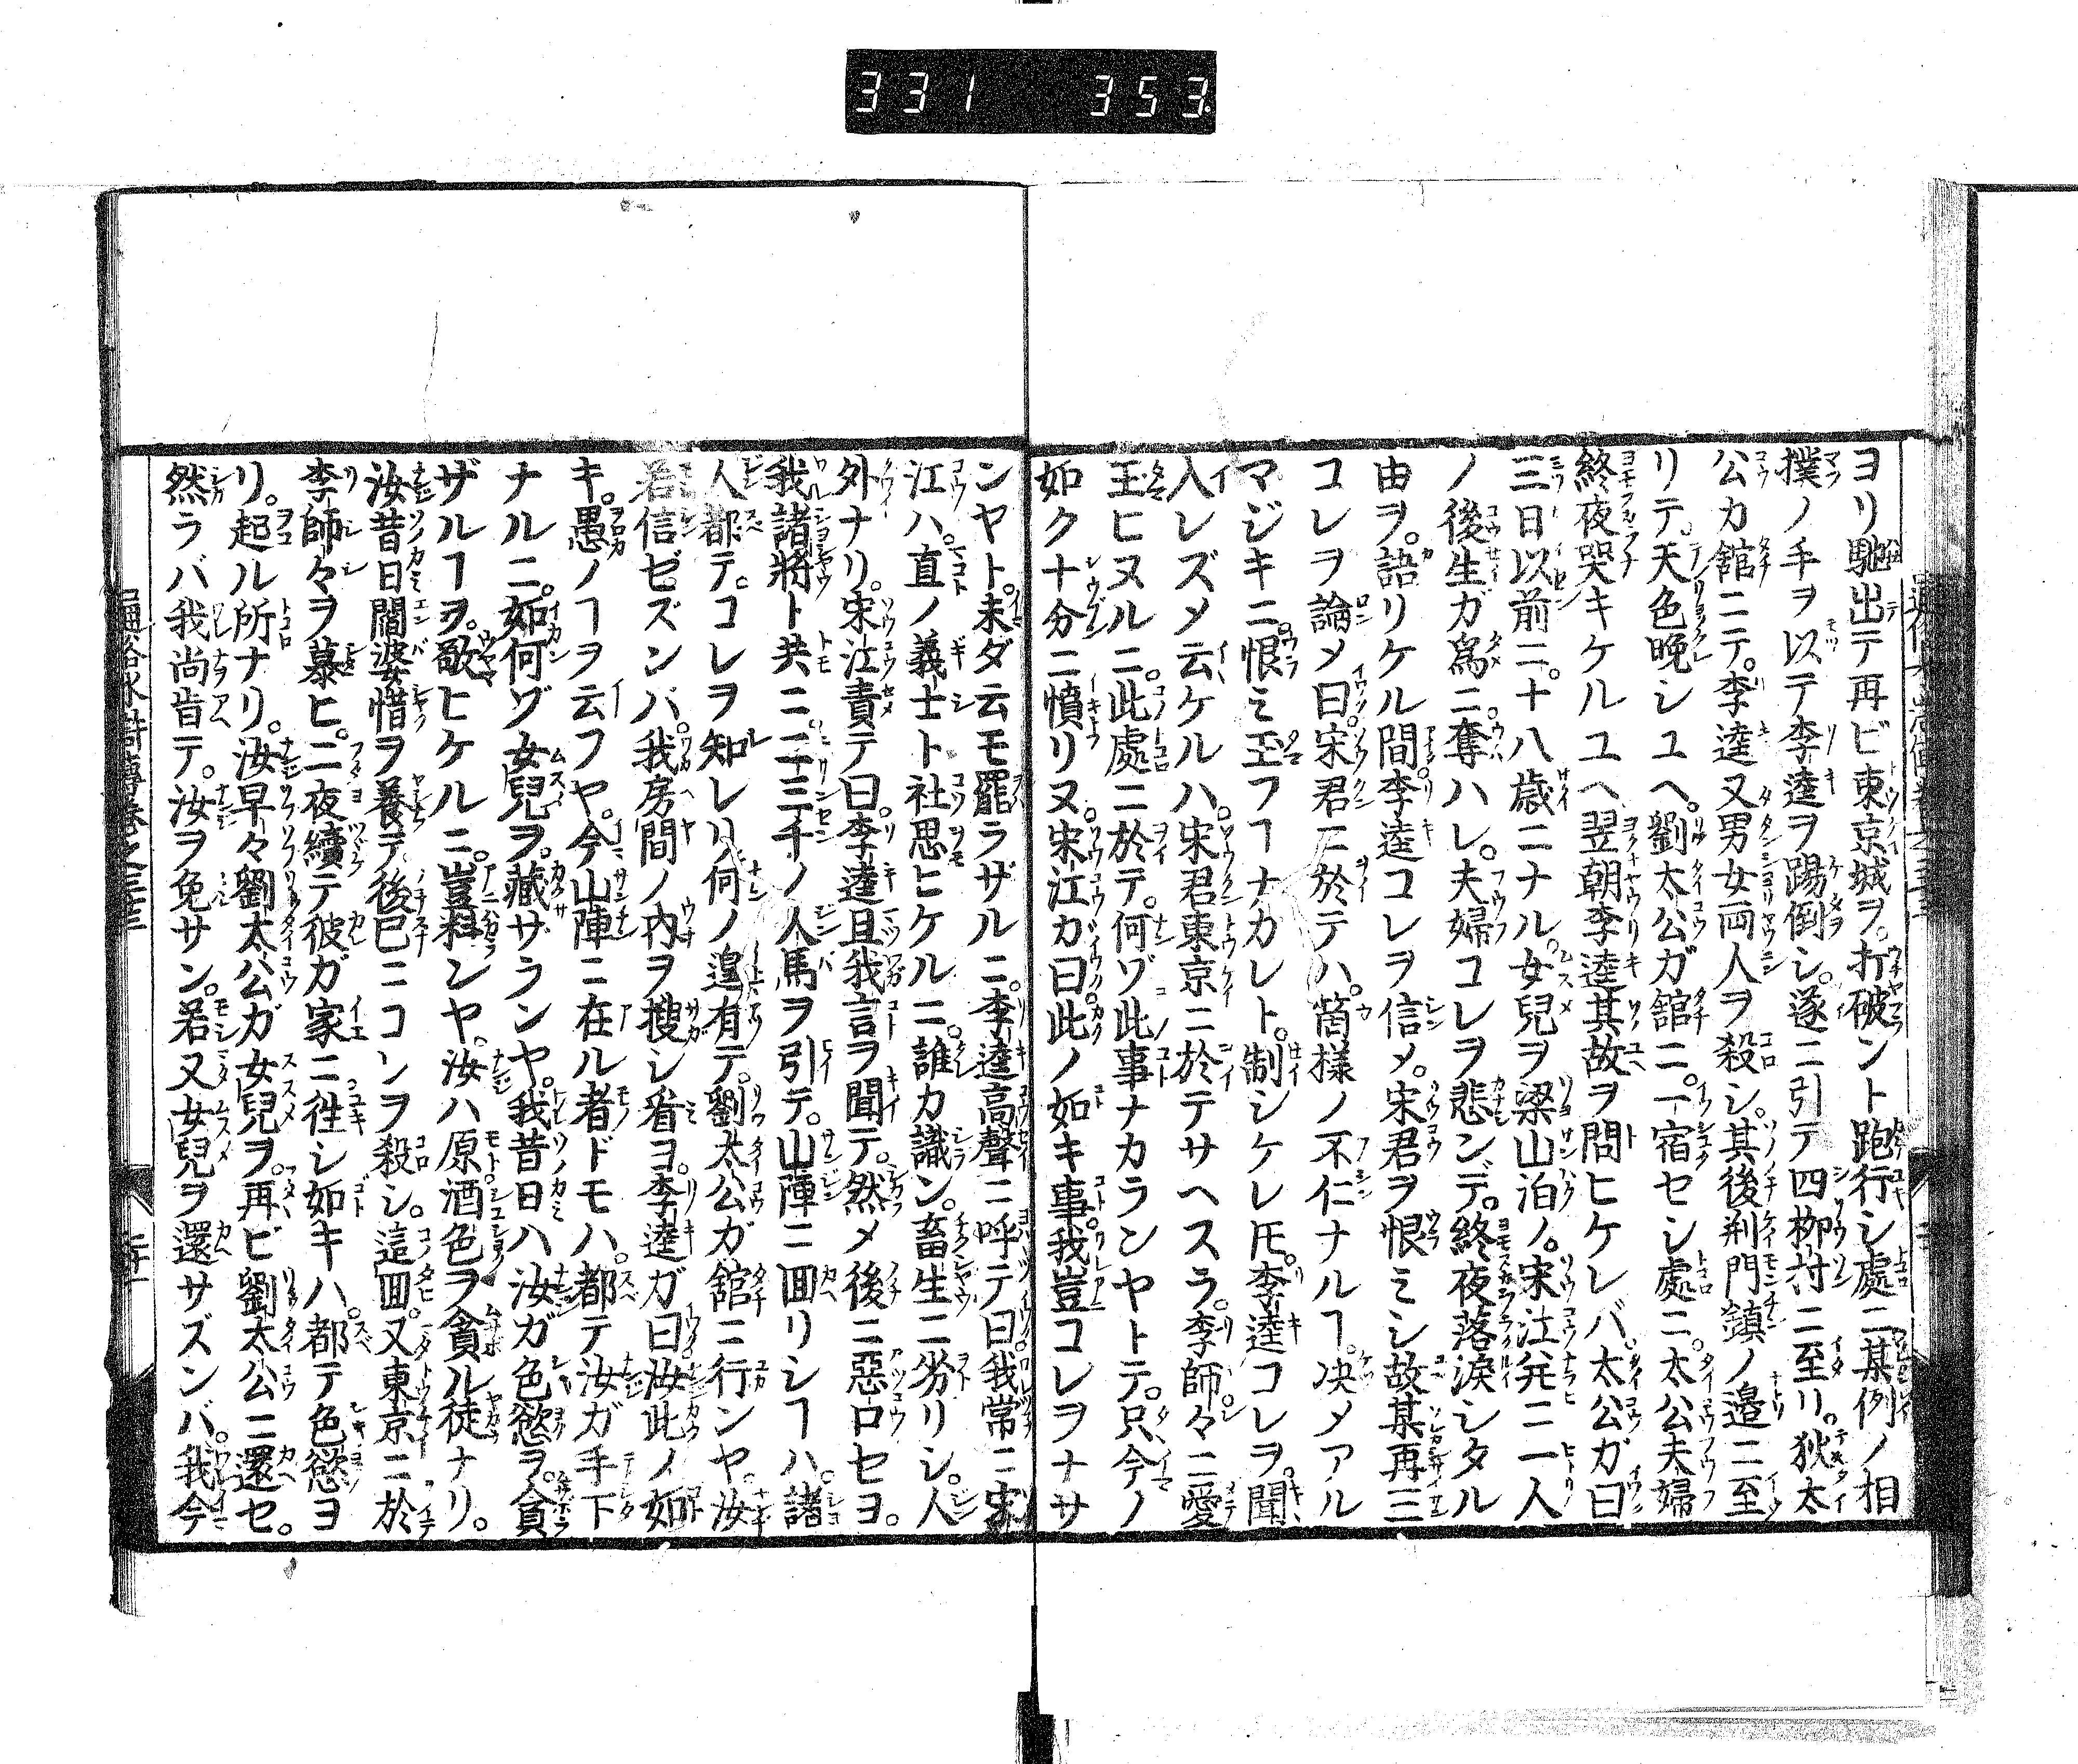 331 353
ヨリ馳出テ再ビ東京城ヲ。打破ント跑行シ處ニ某例ノ相
撲ノ手ヲ以テ李逵ヲ踢倒シ。遂ニ引テ四柳村ニ至リ。狄太
公カ館ニテ。李逵又男女両人ヲ殺シ。其後荊門鎮ノ邉ニ至
リテ。天色晩シユヘ。劉太公ガ館ニ。一宿セシ處ニ。太公夫婦
終夜哭キケルユヘ翌朝李逵其故ヲ問ヒケレバ。太公ガ曰
三日以前ニ。十八歳ニナル。女兒ヲ梁山泊ノ。宋江并ニ一人
ノ後生ガ爲ニ奪ハレ。夫婦コレヲ悲ンデ。終夜落涙シタル
由ヲ。語リケル間李逵コレヲ信メ。宋君ヲ恨ミシ故某再三
コレヲ論メ曰。宋君ニ於テハ。箇様ノ不仁ナルヿ。决メアル
マジキニ。恨ミ玉フヿナカレト。制シケレ𪜈。李逵コレヲ。聞
入レズメ云ケルハ。宋君東京ニ於テサヘスラ。李師々ニ愛
玉ヒヌルニ。此處ニ於テ。何ゾ此事ナカランヤトテ。只今ノ
如ク十分ニ憤リヌ。宋江カ曰此ノ如キ事我豈コレヲナサ
ンヤト。未ダ云モ罷ラザルニ。李逵高聲ニ呼テ曰我常ニ宋
江ハ。直ノ義士ト社思ヒケルニ。誰カ識ン。畜生ニ劣リシ。人
外ナリ。宋江責テ曰。李逵且我言ヲ聞テ。然メ後ニ惡口セヨ。
我諸將ト共ニ。二三千ノ人馬ヲ引テ。山陣ニ囬リシヿハ。諸
人都テ。コレヲ知レリ何ノ遑有テ。劉太公ガ舘ニ行ンヤ。汝
若信ゼズンバ。我房間ノ内ヲ搜シ看ヨ。李逵ガ曰汝此ノ如
キ。愚ノヿヲ云フヤ。今山陣ニ在ル者ドモハ。都テ汝ガ手下
ナルニ。如何ゾ女兒ヲ。藏サランヤ。我昔日ハ汝ガ色慾ヲ。貪
ザルヿヲ。敬ヒケルニ。豈料ンヤ。汝ハ原酒色ヲ貪ル徒ナリ。
汝昔日閻婆惜ヲ養テ後巳ニコレヲ殺シ。這囬。又東京ニ於
李師々ヲ慕ヒ。二夜續テ彼ガ家ニ徃シ如キハ。都テ色慾ヨ
リ。起ル所ナリ。汝早々劉太公ガ女兒ヲ。再ビ劉太公ニ還セ。
然ラバ我尚旨テ。汝ヲ免サン。若又女兒ヲ還サズンバ。我今
通俗水滸傳巻之三十三